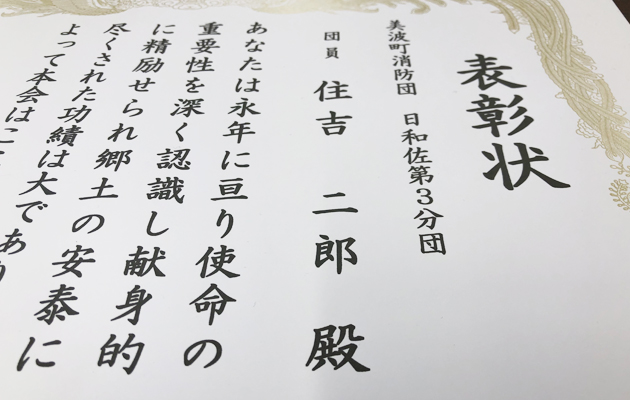 表彰状
美波町消防団 日和佐第3分団
団員 住吉 二郎 殿
あなたは永年に亘り使命の
重要性を深く認識し献身的
に精励せられ郷土の安泰に
尽くされた功績は大であり
よって本会はこ